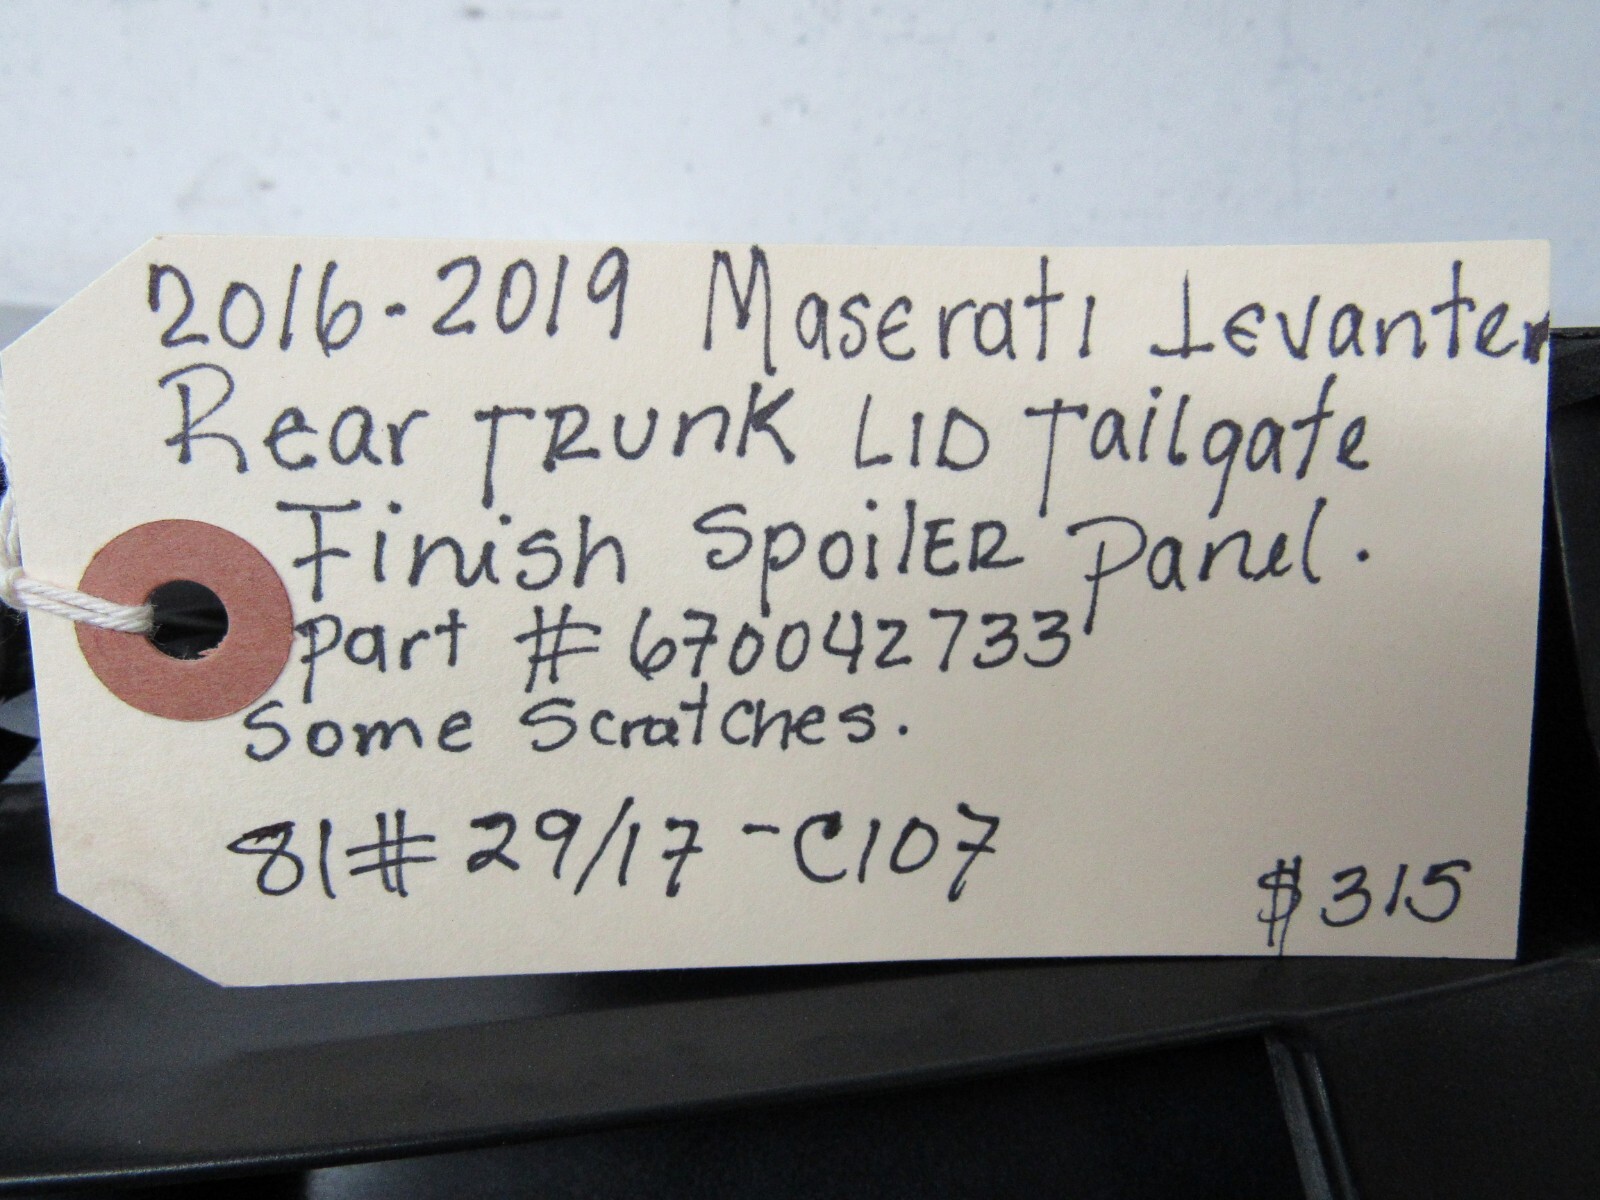 2016-2019 Maserati Levanter
Rear TRUNK LID Tailgate
Finish SpoilER Panel.
Part # 670042733
Some Scratches.
81# 29/17 -C107
$315